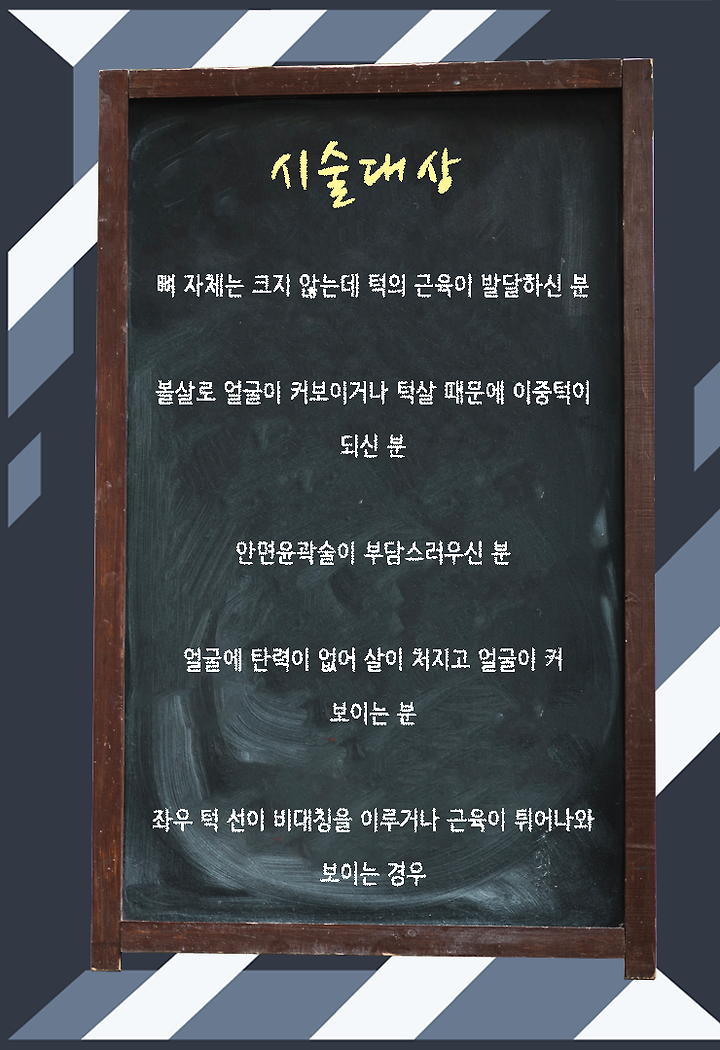 시술대상
뼈 자체는 크지 않는데 턱의 근육이 발달하신 분
볼살로 얼굴이 커보이거나 턱살 때문에 이중턱이
되신 분
안면윤곽술이 부담스러우신 분
얼굴에 탄력이 없어 살이 처지고 얼굴이 커
보이는 분
좌우 턱 선이 비대칭을 이루거나 근육이 튀어나와
보이는 경우